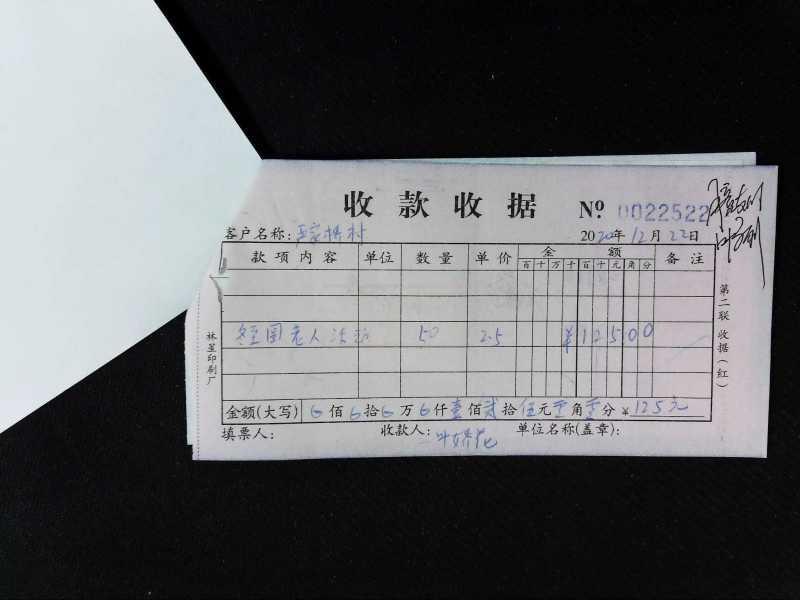 收款收据 Nº 0022522
客户名称: 严家桥村 2020年12月22日
款项内容 单位 数量 单价 金额 备注
百十万千百十元角分
冬至圆老人活动 50 2.5 ¥12500
金额(大写) 佰 拾 万 仟壹佰贰拾伍元零角零分 ¥125元
填票人: 收款人: 叶娇花 单位名称(盖章):
第二联 收据(红)
林星印刷厂